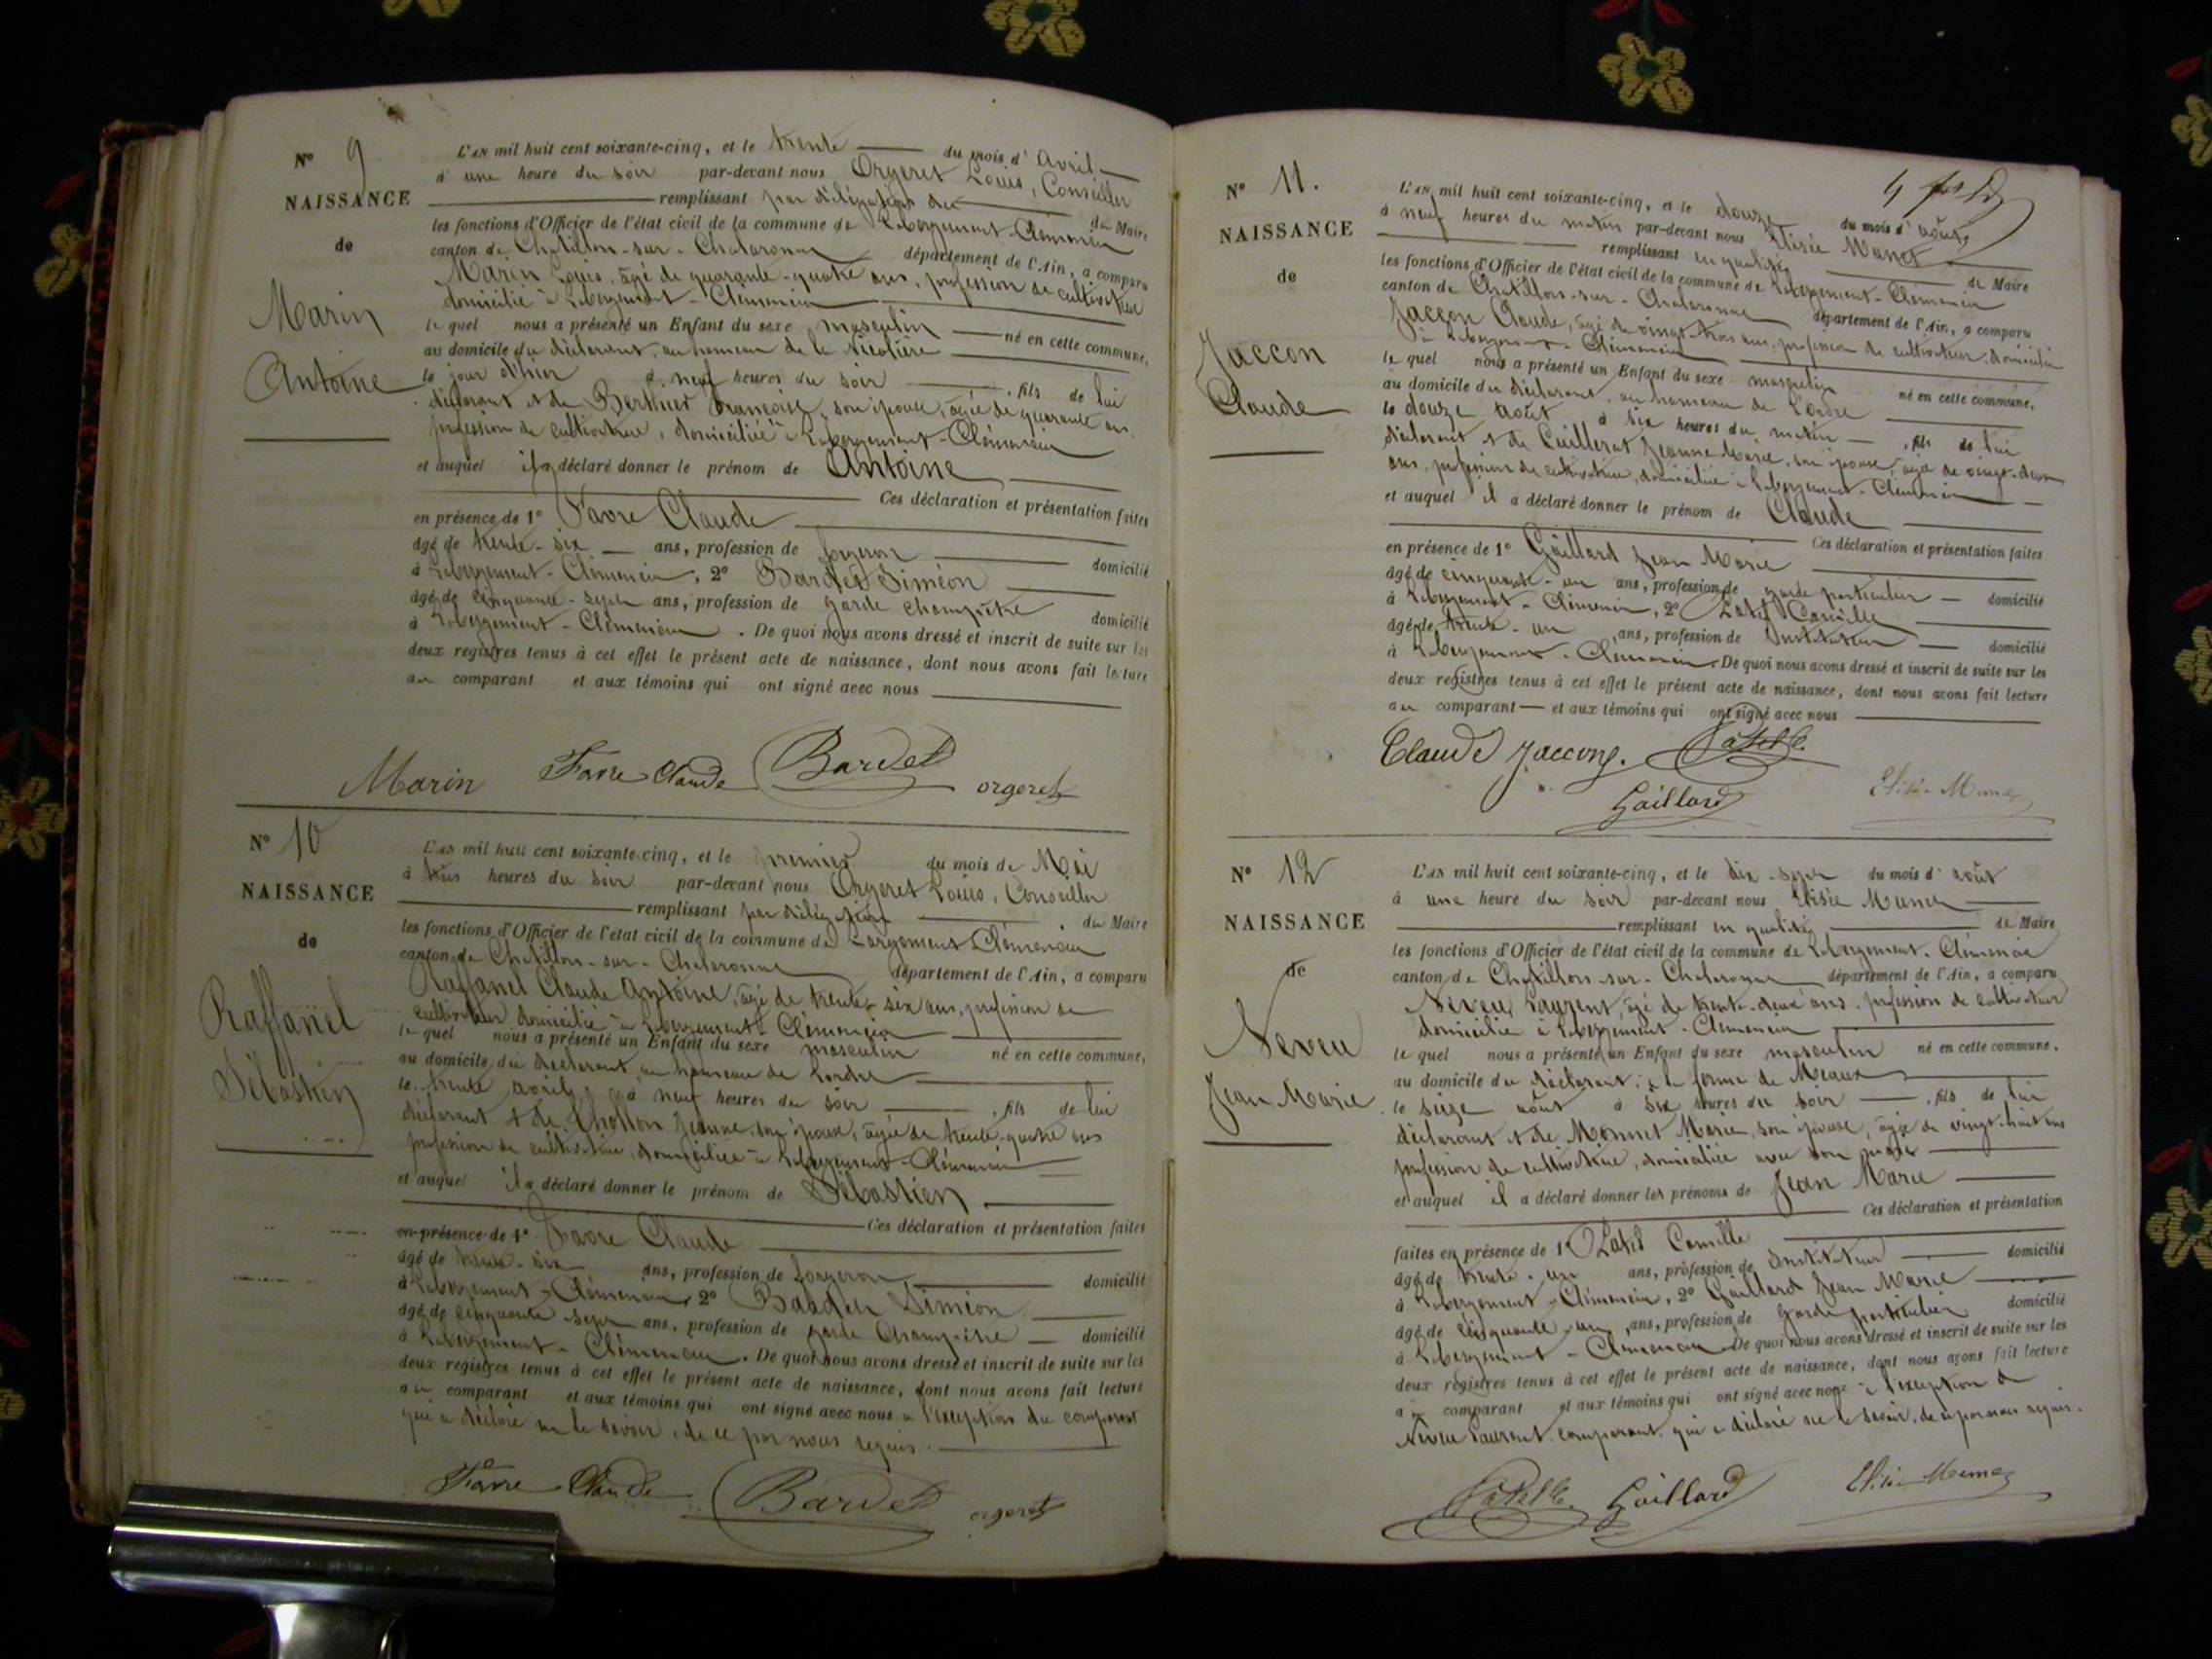 N° 9
NAISSANCE
de
Marin
Antoine
L'AN mil huit cent soixante-cinq, et le trente du mois d' avril
à une heure du soir par-devant nous Orgeret Louis, Conseiller
remplissant par délégation du Maire
les fonctions d'Officier de l'état civil de la commune de L'abergement-Clémencia
canton de Chatillon-sur-Chalaronne département de l'Ain, a comparu
Marin Louis, âgé de quarante-quatre ans, profession de cultivateur
domicilié à L'abergement-Clémencia
lequel nous a présenté un Enfant du sexe masculin né en cette commune,
au domicile du déclarant, au hameau de la Nicolière
le jour d'hier à neuf heures du soir, fils de lui
déclarant et de Berthier Françoise, son épouse, âgée de quarante ans
profession de cultivatrice, domiciliée à L'abergement-Clémencia
et auquel il a déclaré donner le prénom de Antoine
Ces déclaration et présentation faites
en présence de 1° Favre Claude
âgé de trente-six ans, profession de forgeron domicilié
à L'abergement-Clémencia, 2° Bardet Siméon
âgé de cinquante-sept ans, profession de garde champêtre domicilié
à L'abergement-Clémencia. De quoi nous avons dressé et inscrit de suite sur les
deux registres tenus à cet effet le présent acte de naissance, dont nous avons fait lecture
au comparant et aux témoins qui ont signé avec nous
Marin Favre Claude Bardet orgeret
N° 10
NAISSANCE
de
Raffanel
Sébastien
L'AN mil huit cent soixante-cinq, et le premier du mois de Mai
à trois heures du soir par-devant nous Orgeret Louis, Conseiller
remplissant par délégation du Maire
les fonctions d'Officier de l'état civil de la commune de L'argement-Clémencia
canton de Chatillon-sur-Chalaronne département de l'Ain, a comparu
Raffanel Claude Antoine, âgé de trente-six ans, profession de
cultivateur domicilié à L'abergement-Clémencia
lequel nous a présenté un Enfant du sexe masculin né en cette commune,
au domicile du déclarant, au hameau de Lordre
le trente avril à neuf heures du soir, fils de lui
déclarant et de Chollon Jeanne, son épouse, âgée de trente-quatre ans
profession de cultivatrice, domiciliée à L'abergement-Clémencia
et auquel il a déclaré donner le prénom de Sébastien
Ces déclaration et présentation faites
en présence de 1° Favre Claude
âgé de trente-six ans, profession de forgeron domicilié
à L'abergement-Clémencia, 2° Bardet Siméon
âgé de cinquante-sept ans, profession de garde champêtre domicilié
à L'abergement-Clémencia. De quoi nous avons dressé et inscrit de suite sur les
deux registres tenus à cet effet le présent acte de naissance, dont nous avons fait lecture
au comparant et aux témoins qui ont signé avec nous à l'exception du comparant
qui a déclaré ne le savoir, de ce par nous requis.
Favre Claude Bardet orgeret
N° 11.
NAISSANCE
de
Jaccon
Claude
L'AN mil huit cent soixante-cinq, et le douze du mois d' août
à neuf heures du matin par-devant nous Elisée Munet
remplissant en qualité de Maire
les fonctions d'Officier de l'état civil de la commune de L'abergement-Clémencia
canton de Chatillon-sur-Chalaronne département de l'Ain, a comparu
Jaccon Claude, âgé de vingt-trois ans, profession de cultivateur, domicilié
à L'abergement-Clémencia
lequel nous a présenté un Enfant du sexe masculin né en cette commune,
au domicile du déclarant, au hameau de L'ordre
le douze août à six heures du matin, fils de lui
déclarant et de Cuillerat Jeanne Marie, son épouse, âgée de vingt-deux
ans, profession de cultivatrice, domiciliée à L'abergement-Clémencia
et auquel il a déclaré donner le prénom de Claude
Ces déclaration et présentation faites
en présence de 1° Gaillard Jean Marie
âgé de cinquante-un ans, profession de garde particulier domicilié
à L'abergement-Clémencia, 2° Patel Camille
âgé de trente-un ans, profession de Instituteur domicilié
à L'abergement-Clémencia. De quoi nous avons dressé et inscrit de suite sur les
deux registres tenus à cet effet le présent acte de naissance, dont nous avons fait lecture
au comparant et aux témoins qui ont signé avec nous
Claude Jaccon. Patel C.
Gaillard
N° 12
NAISSANCE
de
Neveu
Jean Marie
L'AN mil huit cent soixante-cinq, et le dix-sept du mois d' août
à une heure du soir par-devant nous Elisée Munet
remplissant en qualité de Maire
les fonctions d'Officier de l'état civil de la commune de L'abergement-Clémencia
canton de Chatillon-sur-Chalaronne département de l'Ain, a comparu
Neveu Laurent, âgé de trente-deux ans, profession de cultivateur
domicilié à L'abergement-Clémencia
lequel nous a présenté un Enfant du sexe masculin né en cette commune,
au domicile du déclarant, à la ferme de Meaux
le seize août à six heures du soir, fils de lui
déclarant et de Monnet Marie, son épouse, âgée de vingt-huit ans
profession de cultivatrice, domiciliée avec son mari
et auquel il a déclaré donner les prénoms de Jean Marie
Ces déclaration et présentation
faites en présence de 1° Patel Camille
âgé de trente-un ans, profession de Instituteur domicilié
à L'abergement-Clémencia, 2° Gaillard Jean Marie
âgé de cinquante-un ans, profession de garde particulier domicilié
à L'abergement-Clémencia De quoi nous avons dressé et inscrit de suite sur les
deux registres tenus à cet effet le présent acte de naissance, dont nous avons fait lecture
au comparant et aux témoins qui ont signé avec nous à l'exception de
Neveu Laurent, comparant, qui a déclaré ne le savoir, de ce par nous requis.
Patel C. Gaillard